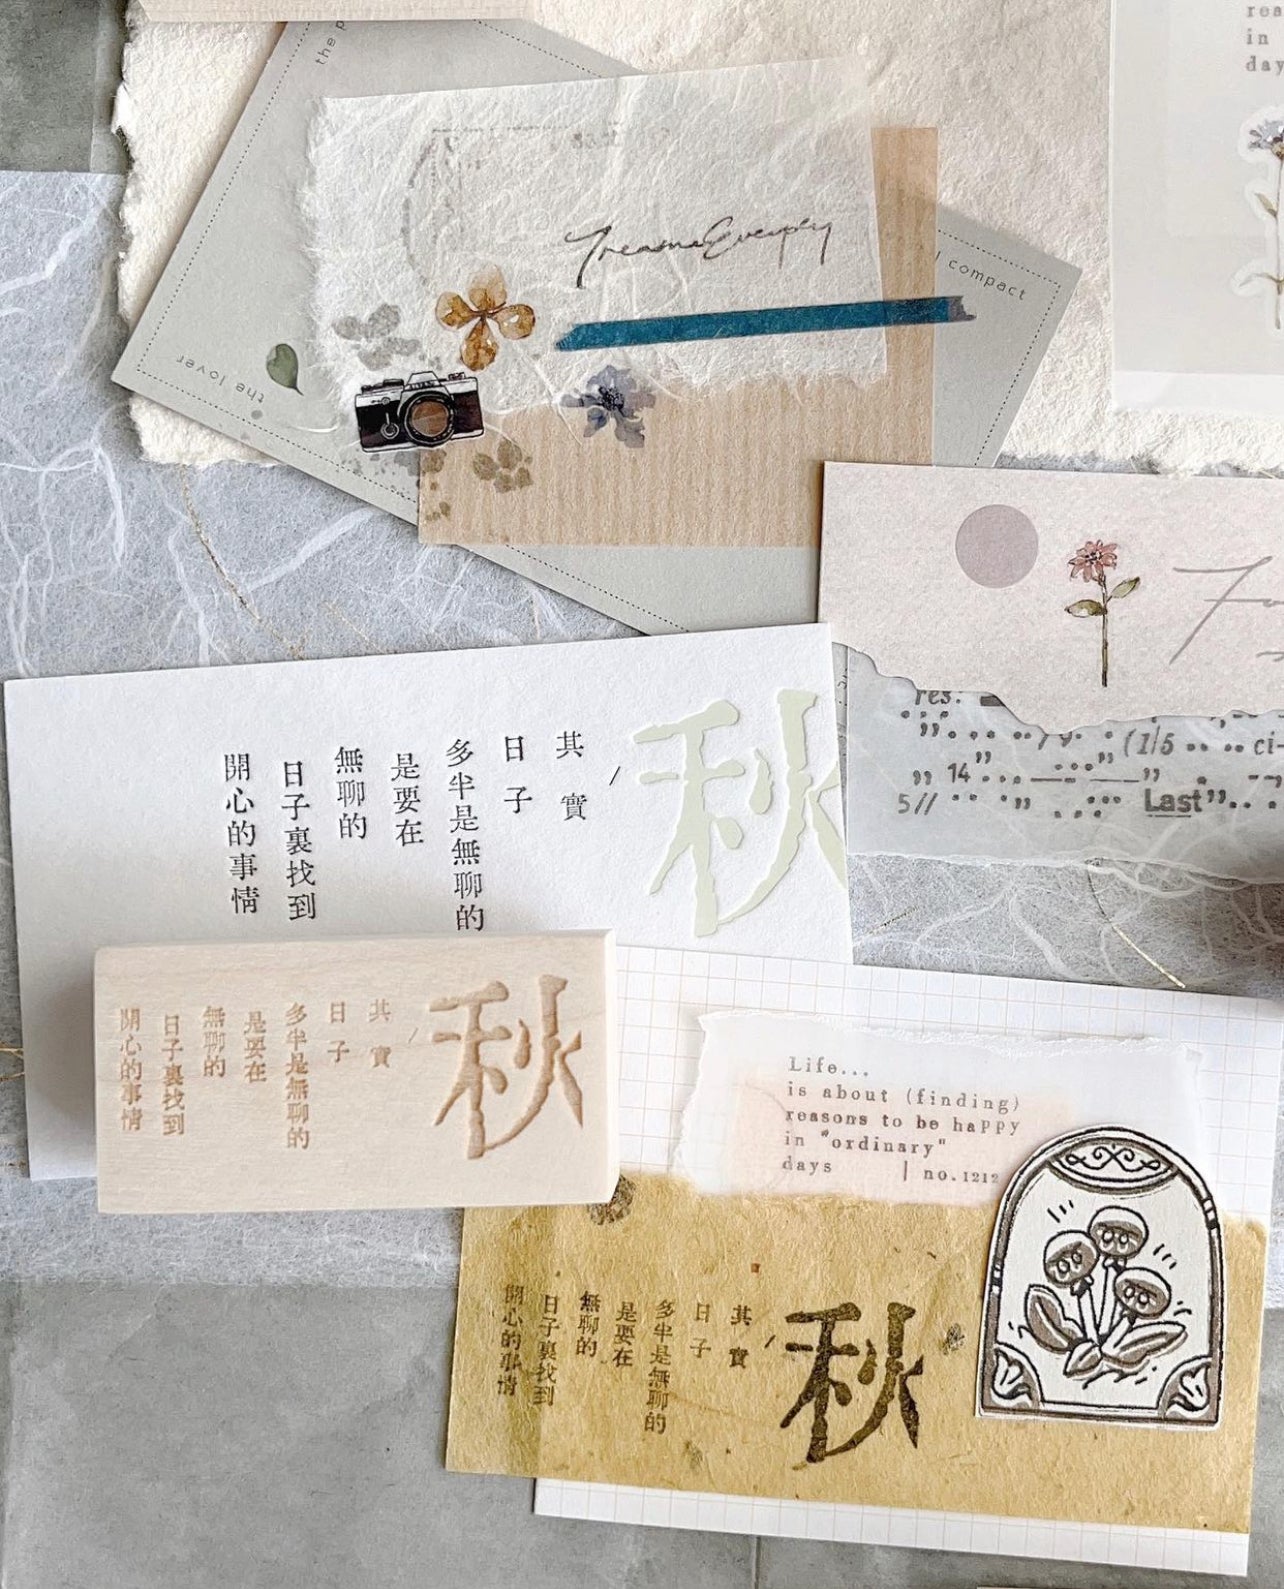 the p
rea
in
day
TreasureEveryday
compact
the lover
res.
(1/5
ci-
14
5//
Last
秋
/
其實
日子
多半是無聊的
是要在
無聊的
日子裏找到
開心的事情
秋
/
其實
日子
多半是無聊的
是要在
無聊的
日子裏找到
開心的事情
Life...
is about (finding)
reasons to be happy
in "ordinary"
days | no.1212
秋
/
其實
日子
多半是無聊的
是要在
無聊的
日子裏找到
開心的事情